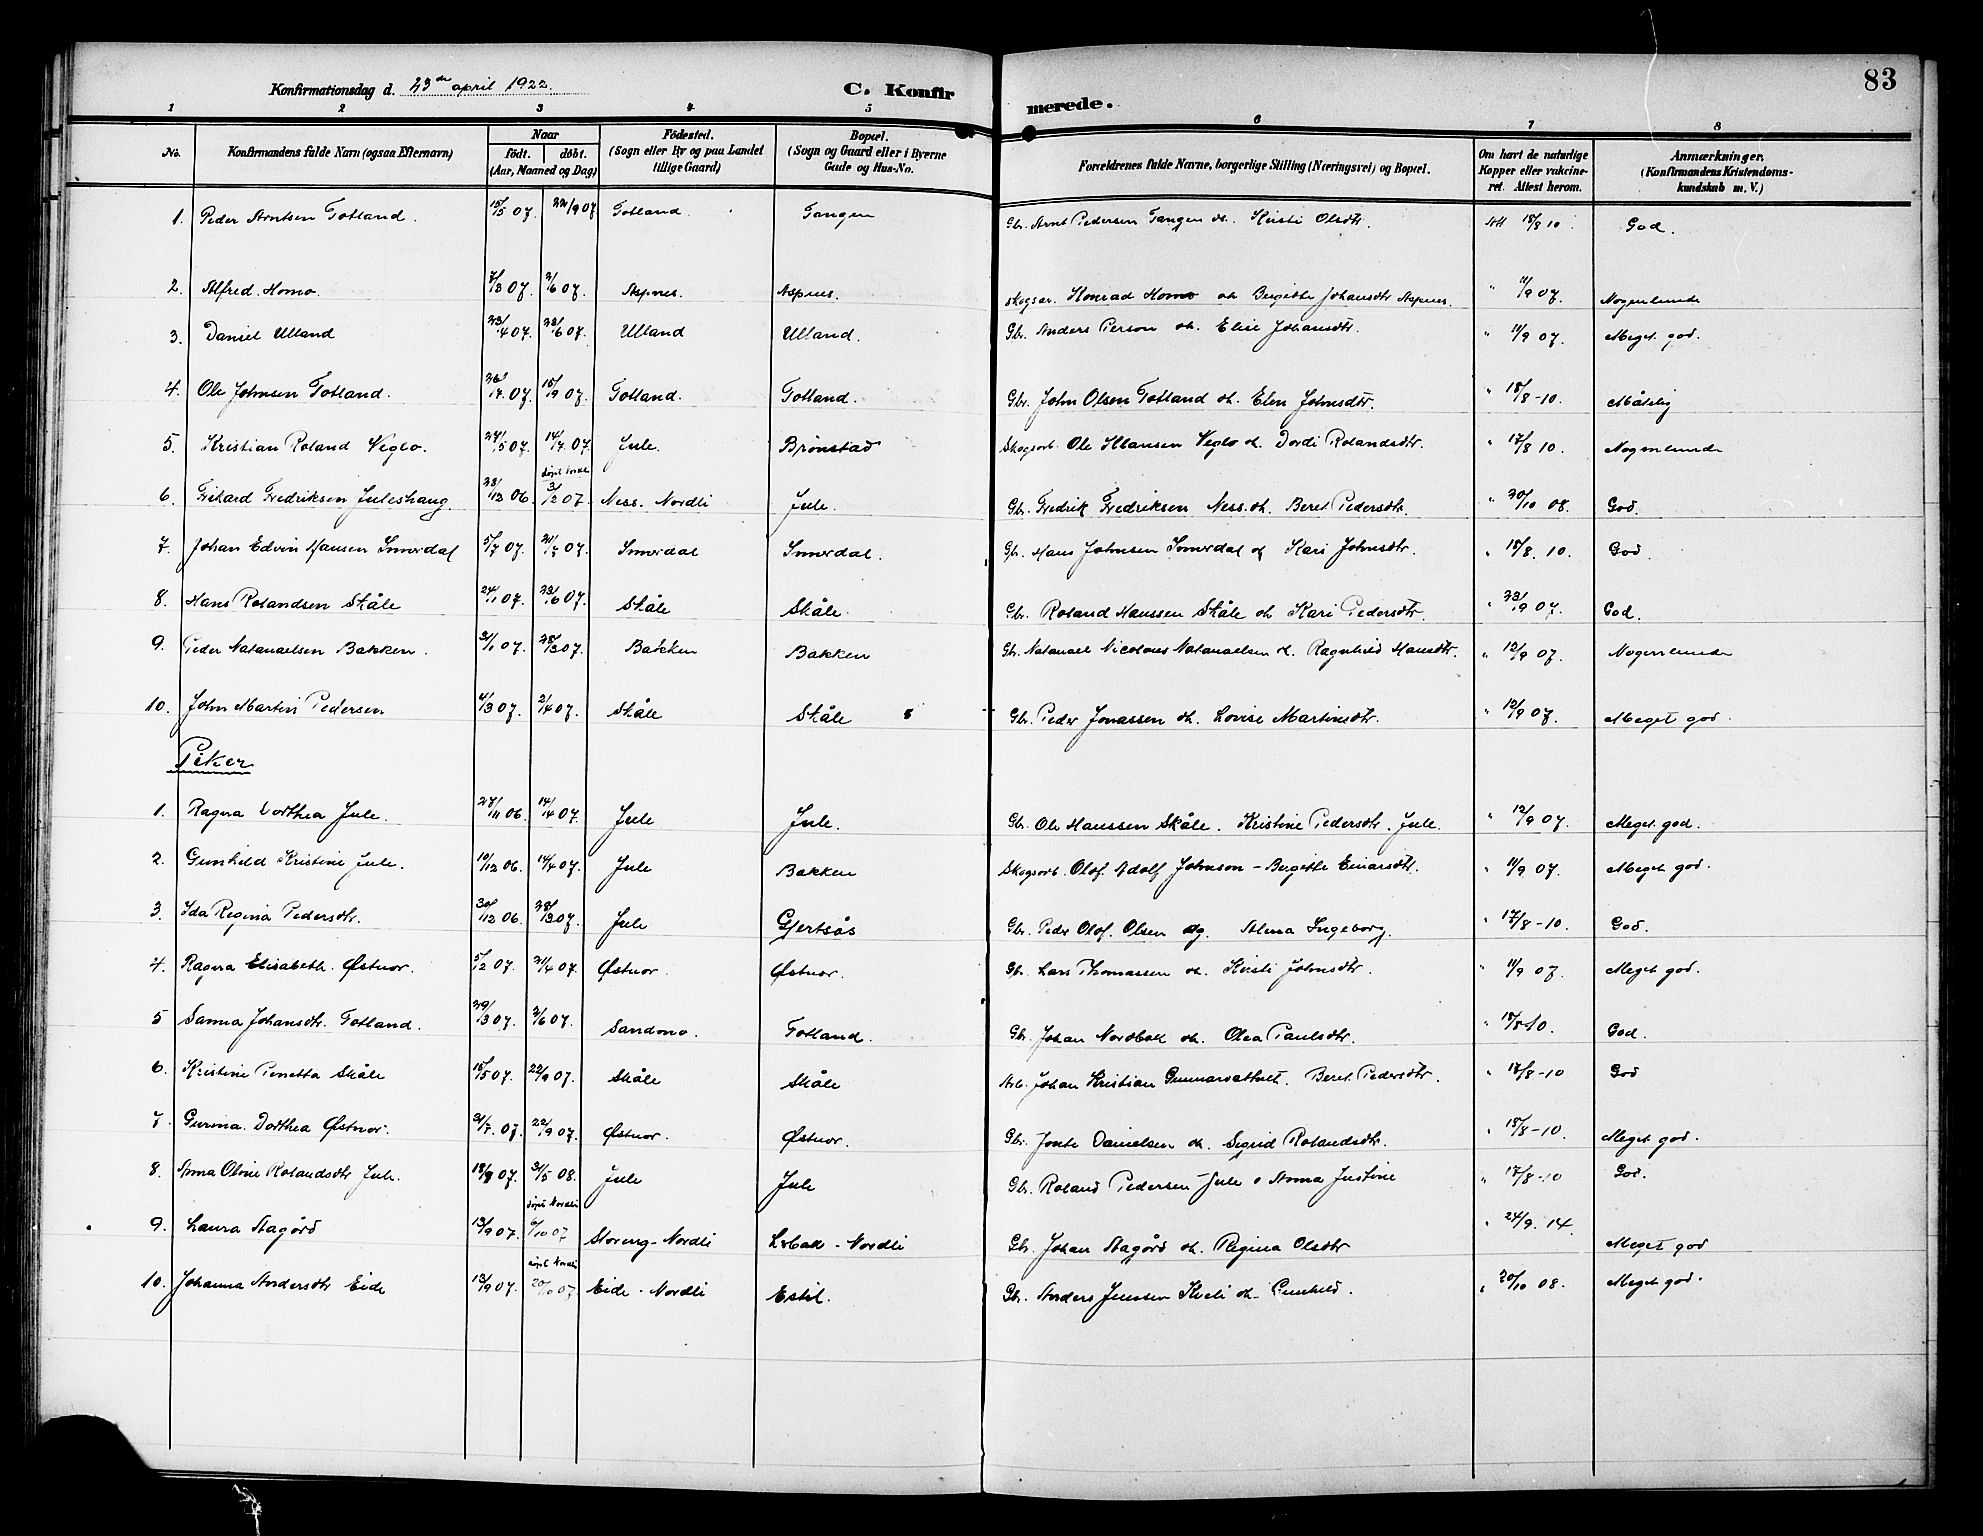 83
Konfirmationsdag d. 23de april 1922. C. Konfirmerede.
1 2 3 4 5 6 7 8
No. Konfirmandens fulde Navn (ogsaa Efternavn) Naar født. døbt. (Aar, Maaned og Dag) Fødested. (Sogn eller By og paa Landet tillige Gaard) Bopæl. (Sogn og Gaard eller i Byerne Gade og Hus-No. Forældrenes fulde Navne, borgerlige Stilling (Næringsvei) og Bopæl. Om havt de naturlige Kopper eller vakcineret. Attest herom. Anmærkninger. (Konfirmandens Kristendomskundskab m. V.)
1. Peder Arntsen Totland. 15/5 07. 22/9 07 Totland. Tangen Gbr. Arnt Pedersen Tangen oh. Kirsti Olsdtr. Att 18/8 10. God.
2. Alfred Homo. 7/3 07. 2/6 07. Aspnes. Aspnes. Skogsar. Konrad Homo oh Birgitte Johansdtr Aspnes. " 11/9 07. Nogenlunde
3. Daniel Ulland 23/4 07. 23/6 07. Ulland Ulland. Gbr. Anders Person oh. Elise Johansdtr. " 11/9 07. Meget god.
4. Ole Johnsen Totland. 26/7 07. 15/9 07. Totland. Totland. Gbr. John Olsen Totland oh. Elen Johnsdtr. " 18/8-10. Måtelig
5. Kristian Roland Veglo. 27/5 07. 14/7 07. Jule. Brønstad Skogsarb. Ole Hansen Veglo oh. Dordi Rolandsdtr. " 17/8 10. Nogenlunde
døpt Nordli
6. Rikard Fredriksen Juleshaug. 28/12 06. 3/12 07. Ness. Nordli Jule. Gbr. Fredrik Fredriksen Ness. oh. Beret Pedersdtr. " 20/10 08. God.
7. Johan Edvin Hansen Smerdal 5/7 07. 21/7 07. Smerdal Smerdal. Gbr. Hans Johnsen Smerdal og Kari Johnsdtr. " 18/8. 10. God.
8. Hans Rolandsen Skåle 24/1 07. 23/6 07. Skåle Skåle. Gbr. Roland Hanssen Skåle oh Kari Pedersdtr. " 23/9 07. God.
9. Peder Natanaelsen Bakken. 31/1 07. 28/3 07. Bakken Bakken Gbr. Natanael Nicolaus Natanaelsen oh. Ragnhild Hansdtr. " 12/9 07. Nogenlunde
10. John Martin Pedersen 4/3 07. 2/4 07. Skåle Skåle Gbr. Peder Jonassen oh. Lovise Martinsdtr. " 12/9 07. Meget god.
Piker
1. Ragna Dorthea Jule. 27/11 06. 14/4 07. Jule Jule. Gbr. Ole Hanssen Skåle. Kristine Pedersdtr. Jule. " 12/9 07. Meget god.
2. Gunhild Kristine Jule. 10/12 06. 14/4 07. Jule Bakken Skogsarb. Olof Adolf Johnson - Birgitte Einarsdtr. " 11/9 07. Meget god.
3. Ida Regina Pedersdtr. 30/12 06. 28/3 07. Jule Gjertsås Gbr. Peder Olof Olsen og. Alma Ingeborg. " 17/8-10. God.
4. Ragna Elisabeth Østnor. 5/2 07. 21/4 07. Østnor. Østnor. Gbr. Lars Thomassen oh. Kirsti Johnsdtr. " 11/9 07. Meget god.
5 Sanna Johansdtr. Totland. 29/3 07. 2/6 07. Sandmo Totland. Gbr. Johan Nordbak oh. Olea Paulsdtr. " 18/8 10. God.
6. Kristine Penetta Skåle 15/5 07. 22/9 07. Skåle Skåle Arb. Johan Kristian Gunnarvattnet. Beret Pedersdtr. " 17/8-10 God
7. Gurina Dorthea Østnor. 31/7. 07. 22/9 07. Østnor. Østnor. Gbr. Jonte Danielsen oh. Sigrid Rolandsdtr. " 18/8-10. Meget god.
8. Anna Oline Rolandsdtr Jule. 18/8 07. 31/5 08. Jule Jule Gbr. Roland Pedersen Jule o Anna Justine " 17/8-10 God.
døpt Nordli
9. Laura Stagård 13/9 07. 6/10 07 Storeng-Nordli Nordli Gbr. Johan Stagård oh. Regina Olsdtr " 24/9. 14. Meget god
døpt Nordli
10. Johanna Andersdtr Eide 13/9 07. 20/10 07 Eide - Nordli Estil. Gbr. Anders Jenssen Kveli oh - Gunhild. " 20/10 08. Meget god.